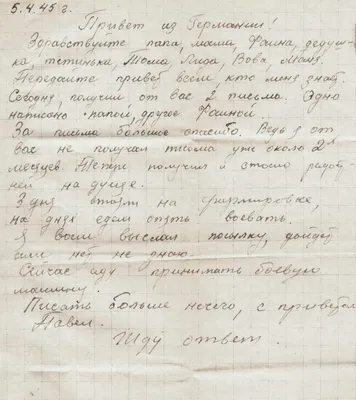 5.4.45 г.
Привет из Германии!
Здравствуйте папа, мама, Фаина, дедуш-
ка, тетинька, Тома, Лида, Вова, Маня.
Передайте привет всем, кто меня знает.
Сегодня, получил, от вас 2 письма. Одно
написано папой, другое Фаиной.
За письма большое спасибо. Ведь я от
вас не получал письма уже около 2х
месяцев. Теперь получил и стало радост-
ней на душе.
3 дня стоим на формировке,
на днях едем опять воевать.
Я Вам выслал посылку, дойдёт
или нет не знаю.
Сейчас иду принимать боевую
машину.
Писать больше нечего, с приветом
Павел.
Жду ответ.